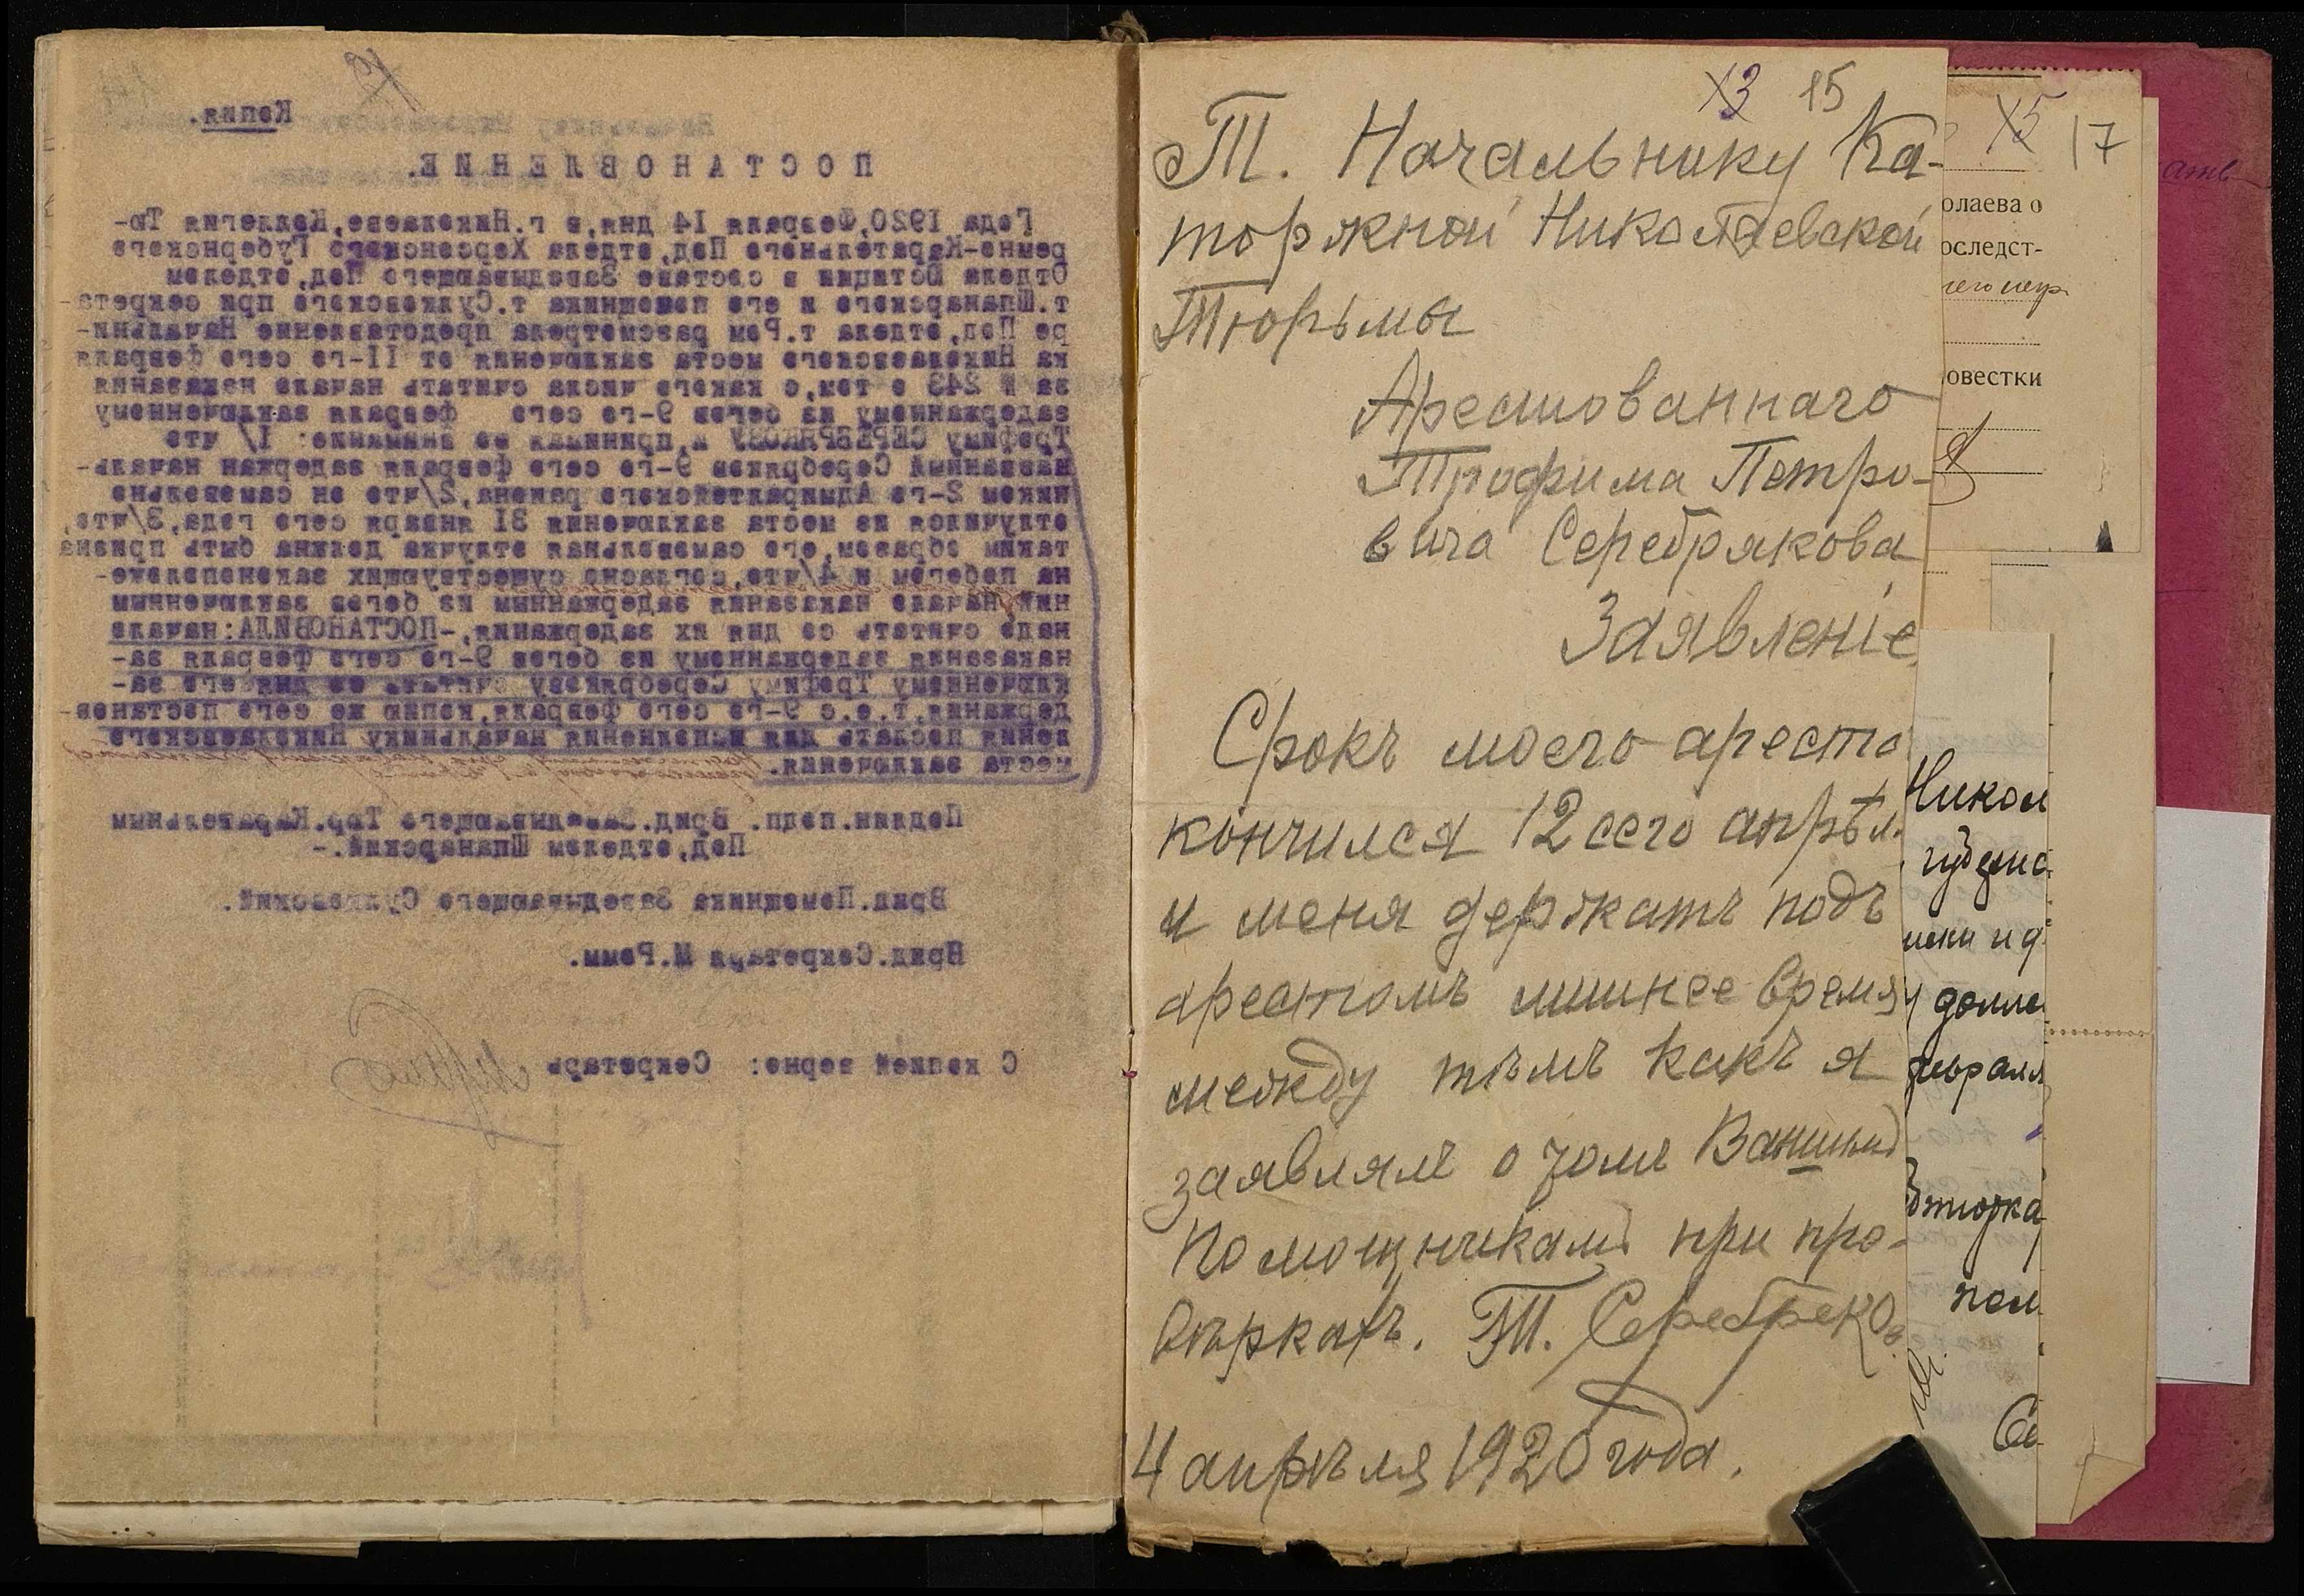 Копия.
ПОСТАНОВЛЕНИЕ.
Года 1920, Февраля 14 дня, в г. Николаеве, Коллегия Тю-
ремно-Карательного Под,отдела Херсонского Губернского
Отдела Юстиции в составе Заведывающего Под,отделом
т.Шпанарского и его помощника т.Сулковского при секрета-
ре Под,отдела т.Рем разсмотрела представление Начальни-
ка Николаевского места заключения от II-го сего февраля
за № 243 о том, с какого числа считать начало наказания
задержанному из бегов 9-го сего февраля заключенному
Трофиму СЕРЕБРЯКОВУ и, принимая во внимание: I/ что
названный Серебряков 9-го сего февраля задержан началь-
ником 2-го Адмиралтейского района, 2/что он самовольно
отлучился из места заключения 31 января сего года, 3/что,
таким образом, его самовольная отлучка должна быть призна
на побегом и 4/что, согласно существующих законоположе-
ний начало наказания задержанным из бегов заключенным
надо считать со дня их задержания,-ПОСТАНОВИЛА: начало
наказания задержанному из бегов 9-го сего февраля за-
ключенному Трофиму Серебрякову считать со дня его за-
держания, т.е. с 9-го сего февраля, копию же сего постанов-
ления послать для исполнения начальнику Николаевского
места заключения.
Подлин.подп. Врид.Заведывающего Тюр.Карательным
Под,отделом Шпанарский.-
Врид.Помощника Заведывающего Сулковский.
Врид.Секретаря М.Ремм.
С копией верно: Секретарь
13 15
Т. Начальнику Ка-
торжной Николаевской
Тюрьмы
Арестованнаго
Трофима Петро-
вича Серебрякова
Заявленіе
Срокъ моего ареста
кончился 12 сего апрѣл.
и меня держатъ подъ
арестомъ лишнее время
между тѣмъ какъ я
заявлялъ о томъ Вашимъ
Помощникамъ при про-
вѣркахъ. Т. Серебреков
4 апрѣля 1920 года.
15 17
олаева о
оследст-
овестки
Никол
февраля